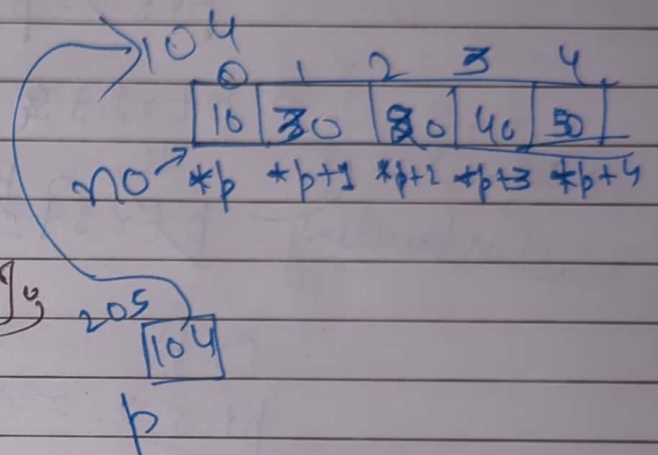 104
0 1 2 3 4
10 30 80 40 50
no *p *p+1 *p+2 *p+3 *p+4
205
104
p